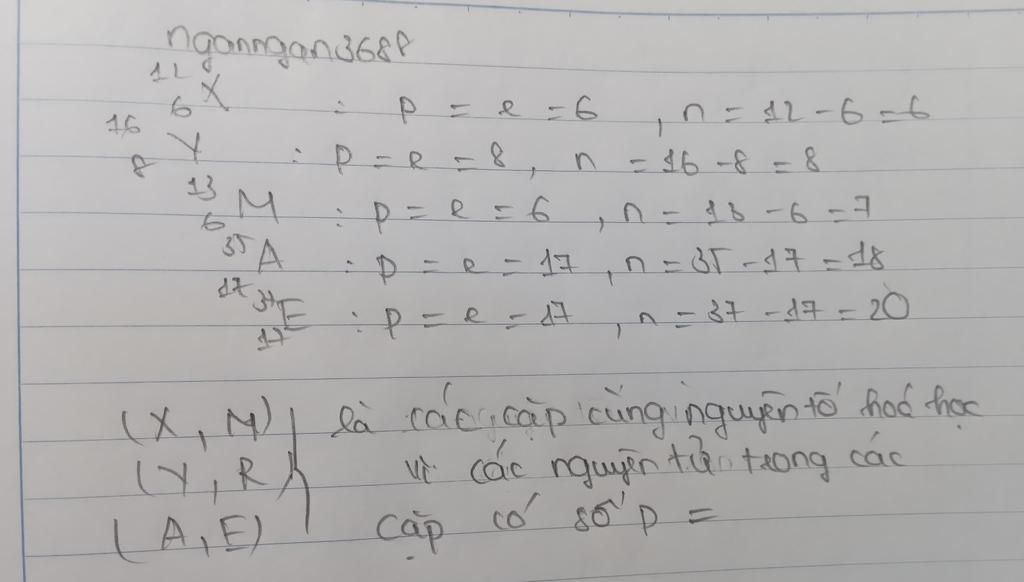 nganngan3688
¹²₆X : p = e = 6 , n = 12 - 6 = 6
¹⁶₈Y : p = e = 8 , n = 16 - 8 = 8
¹³₆M : p = e = 6 , n = 13 - 6 = 7
³⁵₁₇A : p = e = 17 , n = 35 - 17 = 18
³⁷₁₇E : p = e = 17 , n = 37 - 17 = 20
(X, M) là các cặp cùng nguyên tố hoá học
(Y, R) vì các nguyên tử trong các
(A, E) cặp có số p =